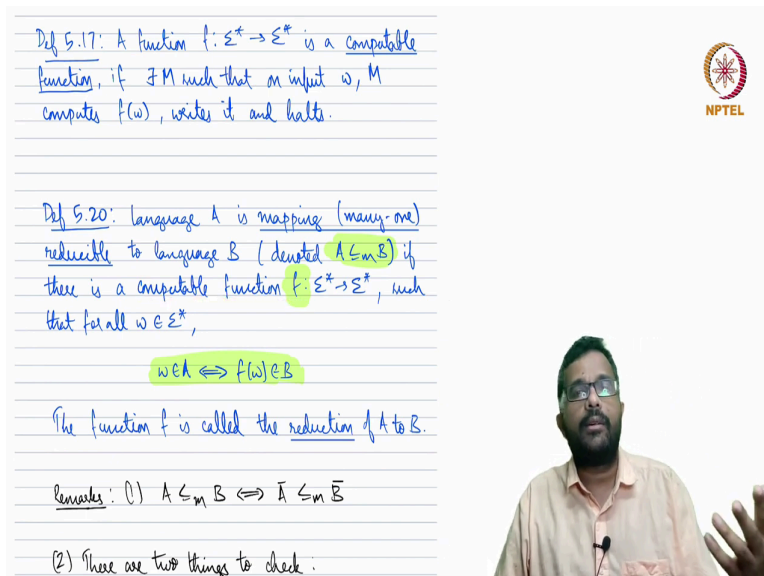 Def 5.17: A function f: Σ* → Σ* is a computable
function, if ∃M such that on input w, M
computes f(w), writes it and halts.
NPTEL
Def 5.20: Language A is mapping (many-one)
reducible to language B (denoted A ≤m B) if
there is a computable function f: Σ* → Σ*, such
that for all w ∈ Σ*,
w ∈ A ⟺ f(w) ∈ B
The function f is called the reduction of A to B.
Remarks: (1) A ≤m B ⟺ Ā ≤m B̄
(2) There are two things to check: